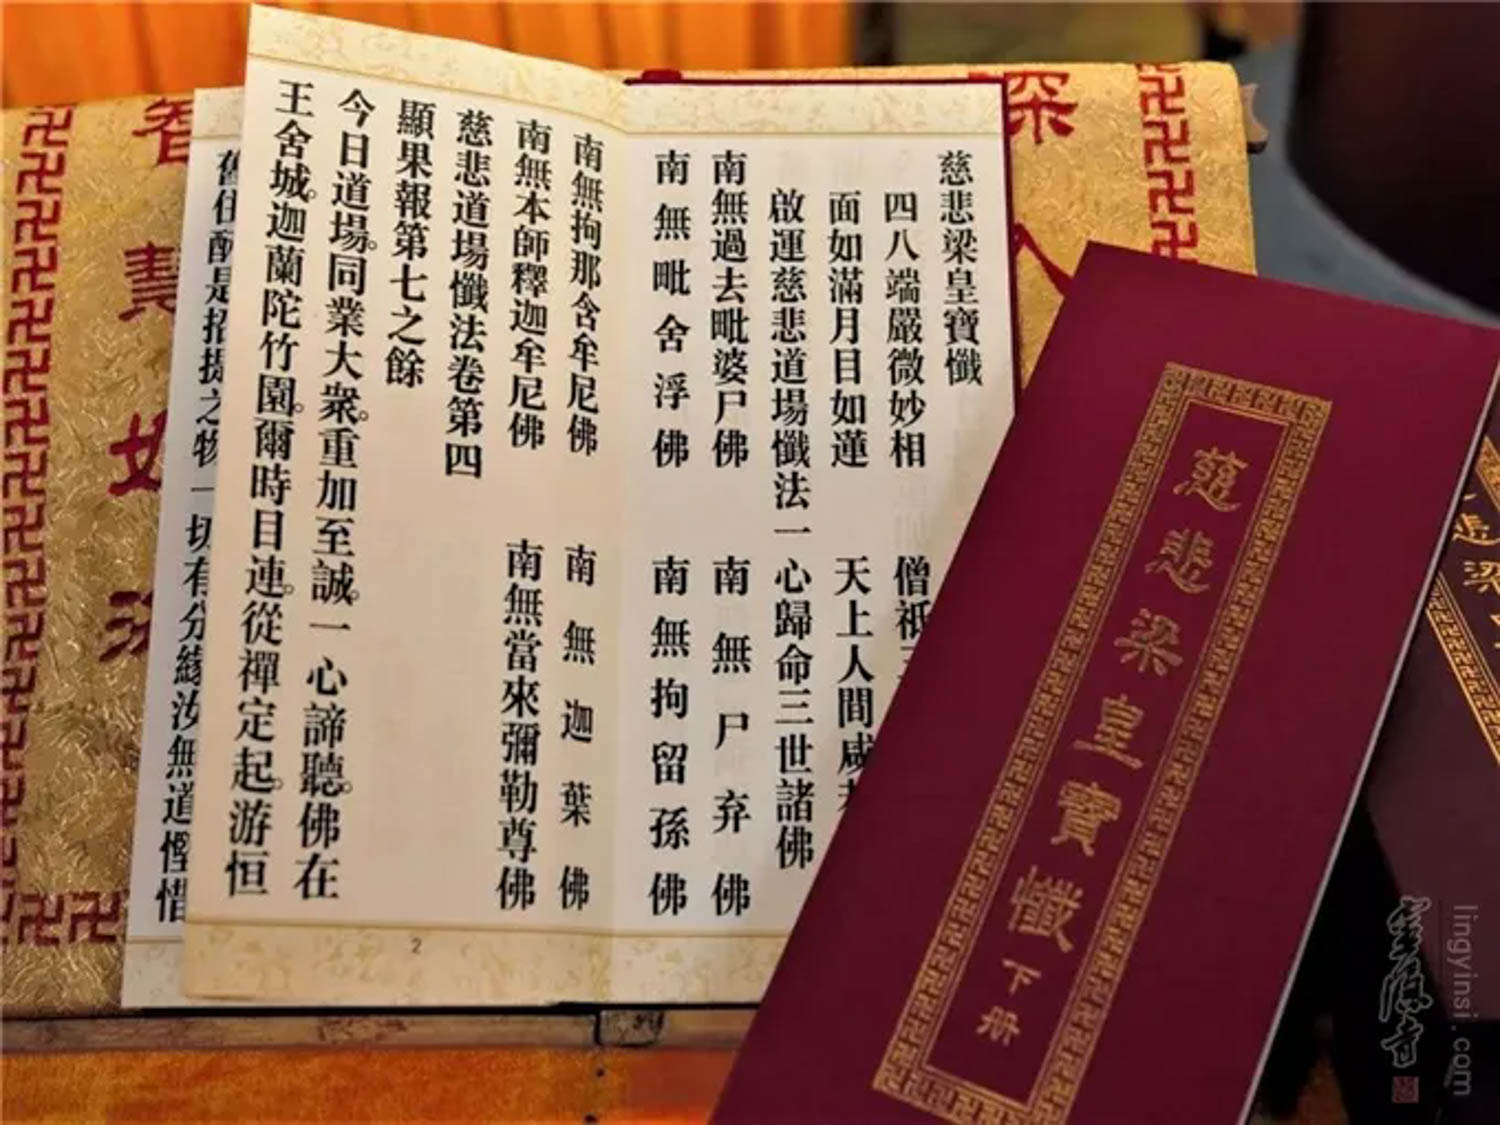 慈悲梁皇寶懺
四八端嚴微妙相 僧祇
面如滿月目如蓮 天上人間咸
啟運慈悲道場懺法一心歸命三世諸佛
南無過去毗婆尸佛 南無尸弃佛
南無毗舍浮佛 南無拘留孫佛
南無拘那含牟尼佛 南無迦葉佛
南無本師釋迦牟尼佛 南無當來彌勒尊佛
慈悲道場懺法卷第四
顯果報第七之餘
今日道場。同業大衆。重加至誠。一心諦聽。佛在
王舍城。迦蘭陀竹園。爾時目連。從禪定起。游恒
2
舊住 是招提之物一切有分緣汝無道慳惜
慈悲梁皇寶懺
下册
悲梁
深
智
慧
靈隱寺
lingyinsi.com